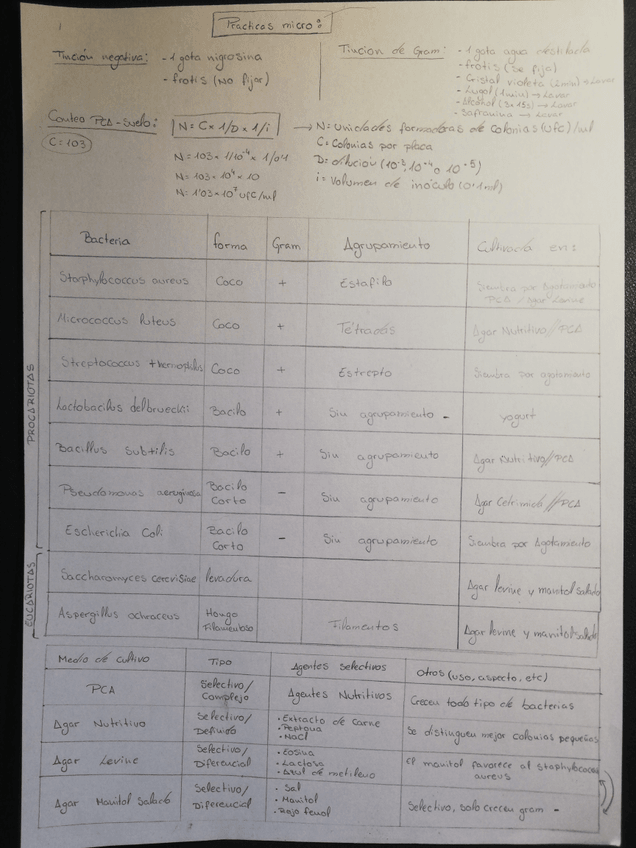 Prácticas micro:
Tinción negativa: - 1 gota nigrosina
- frotis (No fijar)
Tinción de Gram: - 1 gota agua destilada
- frotis (Se fija)
- Cristal violeta (2min) → Lavar
- Lugol (1min) → Lavar
- Alcohol (3x15s) → Lavar
- Safranina → Lavar
Conteo PCA-Suelo: N = C x 1/D x 1/i
C = 103
N = 103 x 1/10⁻⁴ x 1/0'1
N = 103 x 10⁴ x 10
N = 1'03 x 10⁷ UFC/ml
→ N = Unidades formadoras de colonias (UFC)/ml
C = Colonias por placa
D = dilución (10⁻³, 10⁻⁴ o 10⁻⁵)
i = Volumen de inóculo (0'1ml)
PROCARIOTAS
EUCARIOTAS
Bacteria forma Gram Agrupamiento Cultivará en:
Starphylococcus aureus Coco + Estafilo Siembra por Agotamiento PCA / Agar Levine
Micrococcus luteus Coco + Tétradas Agar Nutritivo/PCA
Streptococcus thermophilus Coco + Estrepto Siembra por agotamiento
Lactobacilus delbrueckii Bacilo + Sin agrupamiento - yogurt
Bacillus subtilis Bacilo + Sin agrupamiento Agar Nutritivo//PCA
Pseudomonas aeruginosa Bacilo Corto - Sin agrupamiento Agar Cetrimida //PCA
Escherichia Coli Bacilo Corto - Sin agrupamiento Siembra por Agotamiento
Saccharomyces cerevisiae levadura Agar levine y manitol salado
Aspergillus ochraceus Hongo Filamentoso Filamentos Agar levine y manitol salado
Medio de cultivo Tipo Agentes Selectivos Otros (uso, aspecto, etc)
PCA Selectivo/ Complejo Agentes Nutritivos Crecen todo tipo de bacterias
Agar Nutritivo Selectivo/ Definido • Extracto de Carne • Peptona • NaCl Se distinguen mejor colonias pequeñas
Agar Levine Selectivo/ Diferencial • Eosina • Lactosa • Azul de metileno manitol favorece al staphylococcus aureus
Agar Manitol Salado Selectivo/ Diferencial • Sal • Manitol • Rojo fenol Selectivo, solo crecen gram -